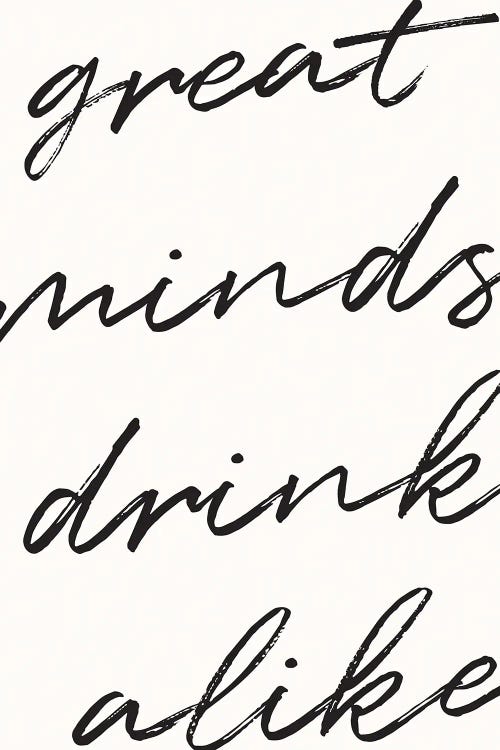 great
minds
drink
alike